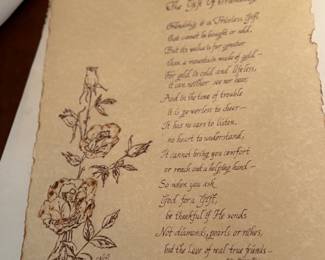 The Gift Of Friendship
Friendship is a Priceless Gift
that cannot be bought or sold,
But its value is far greater
than a mountain made of gold—
For gold is cold and lifeless,
it can neither see nor hear
And in the time of trouble
it is powerless to cheer—
It has no ears to listen,
no heart to understand,
It cannot bring you comfort
or reach out a helping hand—
So when you ask
God for a Gift,
be thankful if He sends
Not diamonds, pearls or riches,
but the Love of real true friends—